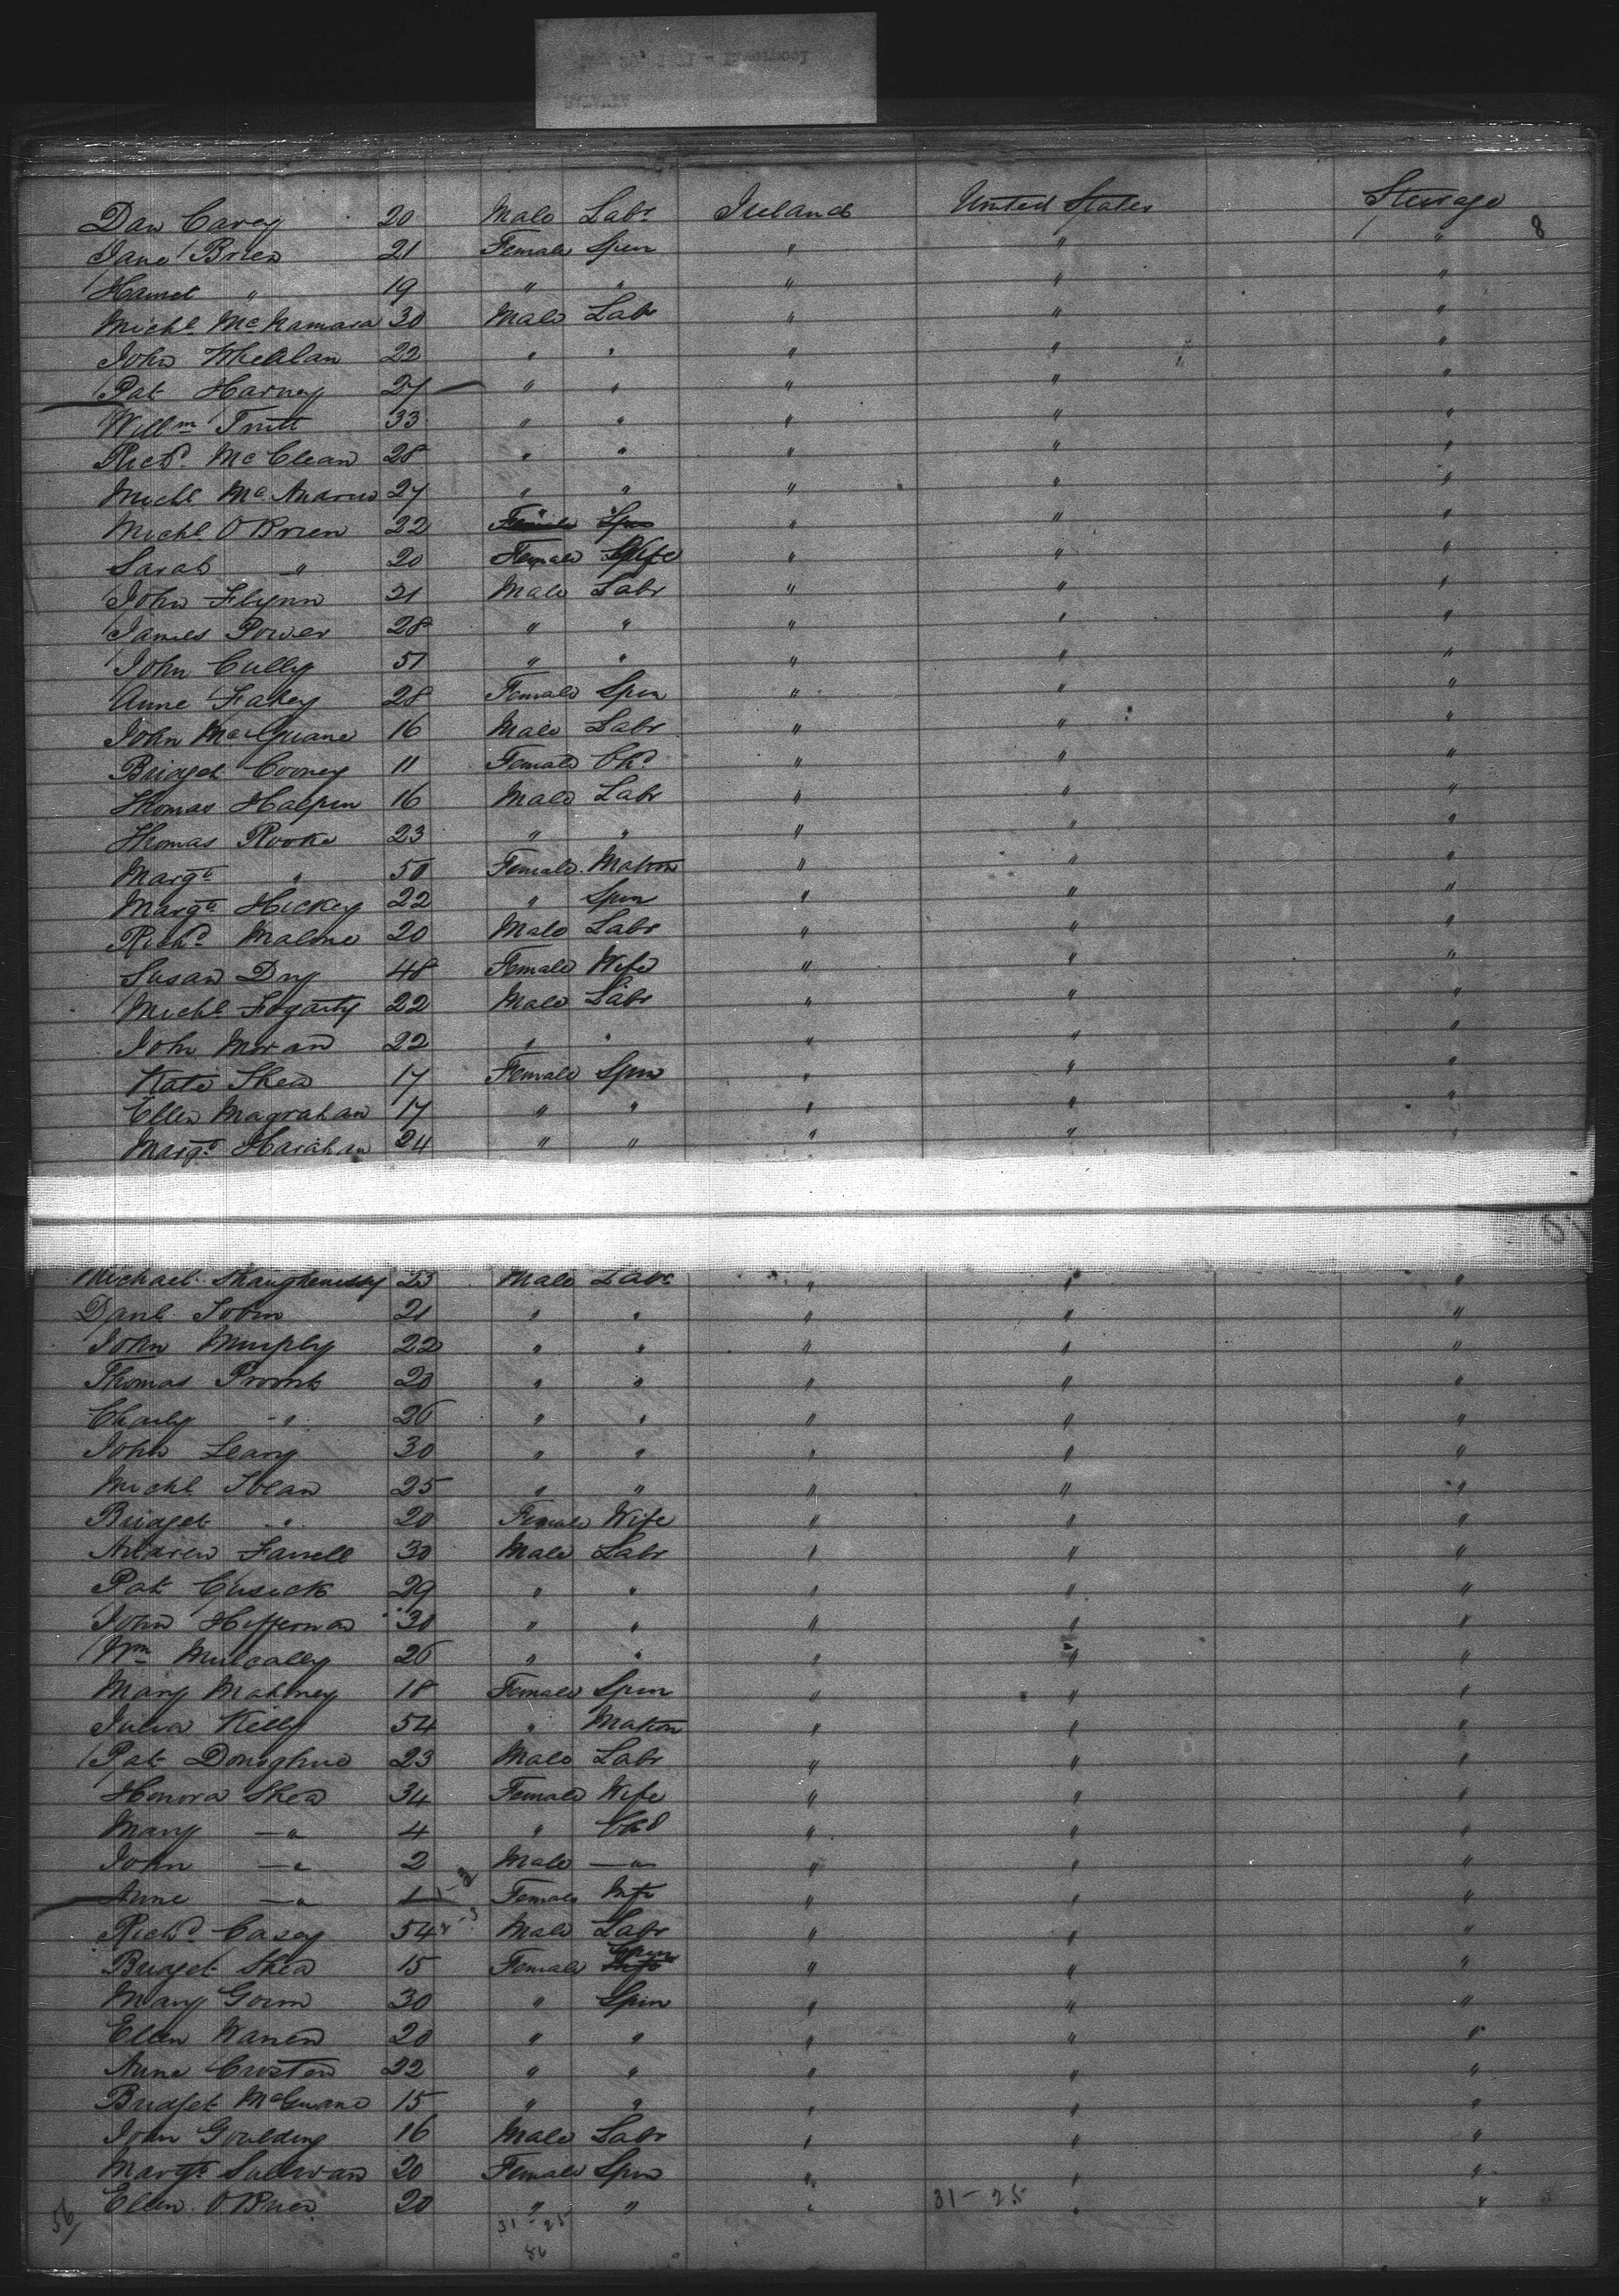 Dan Carey 20 Male Labr Ireland United States Steerage
8
Jane Brien 21 Female Spin " " "
Harriet " 19 " " " " "
Michl McNamara 30 Male Labr " " "
John Whealan 22 " " " " "
Pat Harney 27 " " " " "
Willm 33 " " " " "
Richd McClean 28 " " " " "
Michl McAndrew 27 " " " " "
Michl O'Brien 22 " " " " "
Sarah " 20 Female Wife " " "
John Flynn 21 Male Labr " " "
James Power 28 " " " " "
John Cully 51 " " " " "
Anne Fahey 28 Female Spin " " "
John MacGuane 16 Male Labr " " "
Bridget Cooney 11 Female Chd " " "
Thomas Halpin 16 Male Labr " " "
Thomas Rooke 23 " " " " "
Margt " 50 Female Matron " " "
Margt Hickey 22 " Spin " " "
Richd Malone 20 Male Labr " " "
Susan Dry 48 Female Wife " " "
Michl Fogarty 22 Male Labr " " "
John Moran 22 " " " " "
Kate Shea 17 Female Spin " " "
Ellen Magrahan 17 " " " " "
Margt Harahan 24 " " " " "
Michael Shaughnessy 23 Male Labr " " "
Danl Tobin 21 " " " " "
John Murphy 22 " " " " "
Thomas 20 " " " " "
Charly " 26 " " " " "
John Leary 30 " " " " "
Michl 25 " " " " "
Bridget " 20 Female Wife " " "
Andrew Farrell 30 Male Labr " " "
Pat Cusick 29 " " " " "
John Heffernan 30 " " " " "
Wm Mulcally 26 " " " " "
Mary Mahoney 18 Female Spin " " "
Julia Kelly 54 " Matron " " "
Pat Donoghue 23 Male Labr " " "
Honora Shea 34 Female Wife " " "
Mary " 4 " Chd " " "
John " 2 Male " " " "
Anne " 1 Female Inft " " "
Richd Casey 54 Male Labr " " "
Bridget Shea 15 Female Spin " " "
Mary Gorm 30 " Spin " " "
Ellen Warren 20 " " " " "
Anne Crosten 22 " " " " "
Bridget McGuane 15 " " " " "
John Goulding 16 Male Labr " " "
Margt Sullivan 20 Female Spin " " "
Ellen O'Brien 20 " " " " "
56 31-25 31-25
56